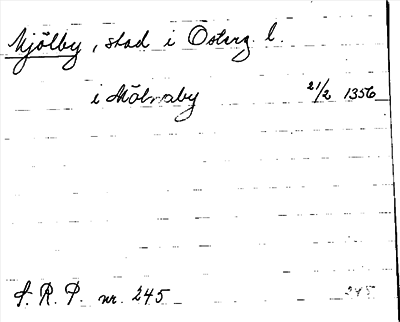 Mjölby, stad i Österg. l.
i Mölnaby 21/2 1356
S. R. P. nr. 245
245